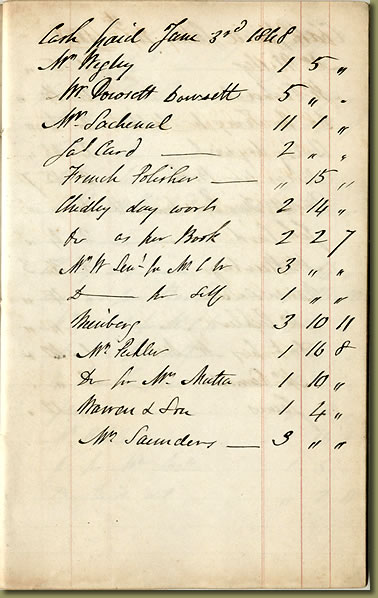 Cash paid June 3rd 1868
Mr Wigley 1 5 "
Mr Dowsett Dowsett 5 " "
Mr Lachenal 11 1 "
Jas Card — 2 " "
French Polisher — " 15 "
Chidley day work 2 14 "
Do as per Book 2 2 7
Mr W Senr for Mr C W 3 " "
D— for self 1 " "
3 10 11
Mr 1 16 8
Do for Mr 1 10 "
Warren & Son 1 4 "
Mr Saunders — 3 " "